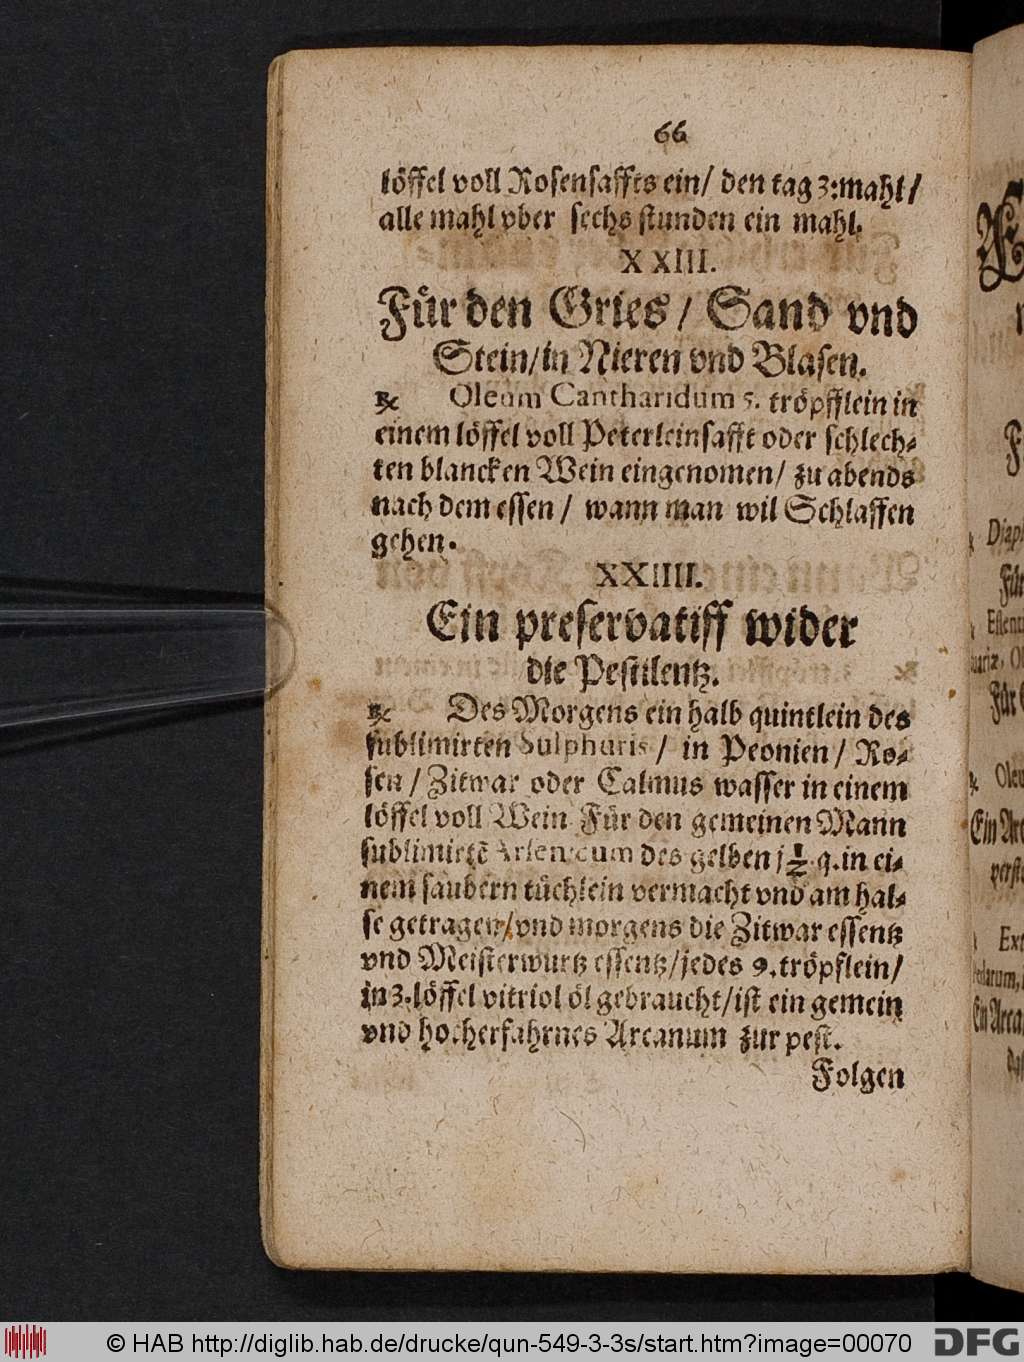 66
löffel voll Rosensaffts ein/ den tag 3:mahl/
alle mahl vber sechs stunden ein mahl.
XXIII.
Für den Gries/ Sand vnd
Stein/in Nieren vnd Blasen.
℞ Oleum Cantharidum 5. tröpfflein in
einem löffel voll Peterleinsafft oder schlech⸗
ten blancken Wein eingenomen/ zu abends
nach dem essen/ wann man wil Schlaffen
gehen.
XXIIII.
Ein preservatiff wider
die Pestilentz.
℞ Des Morgens ein halb quintlein des
sublimirten Sulphuris/ in Peonien/ Ro⸗
sen/ Zitwar oder Calmus wasser in einem
löffel voll Wein Für den gemeinen Mann
sublimirtē Arsenicum des gelben j ½ q. in ei⸗
nem saubern tüchlein vermacht vnd am hal⸗
se getragen/vnd morgens die Zitwar essentz
vnd Meisterwurtz essentz/jedes 9.tröpflein/
in 3.löffel vitriol öl gebraucht/ist ein gemein
vnd hocherfahrnes Arcanum zur pest.
Folgen
Diap
Für
Essent
Für
Oleu
Ein Arc
Ext
Ein Arca
© HAB http://diglib.hab.de/drucke/qun-549-3-3s/start.htm?image=00070
DFG